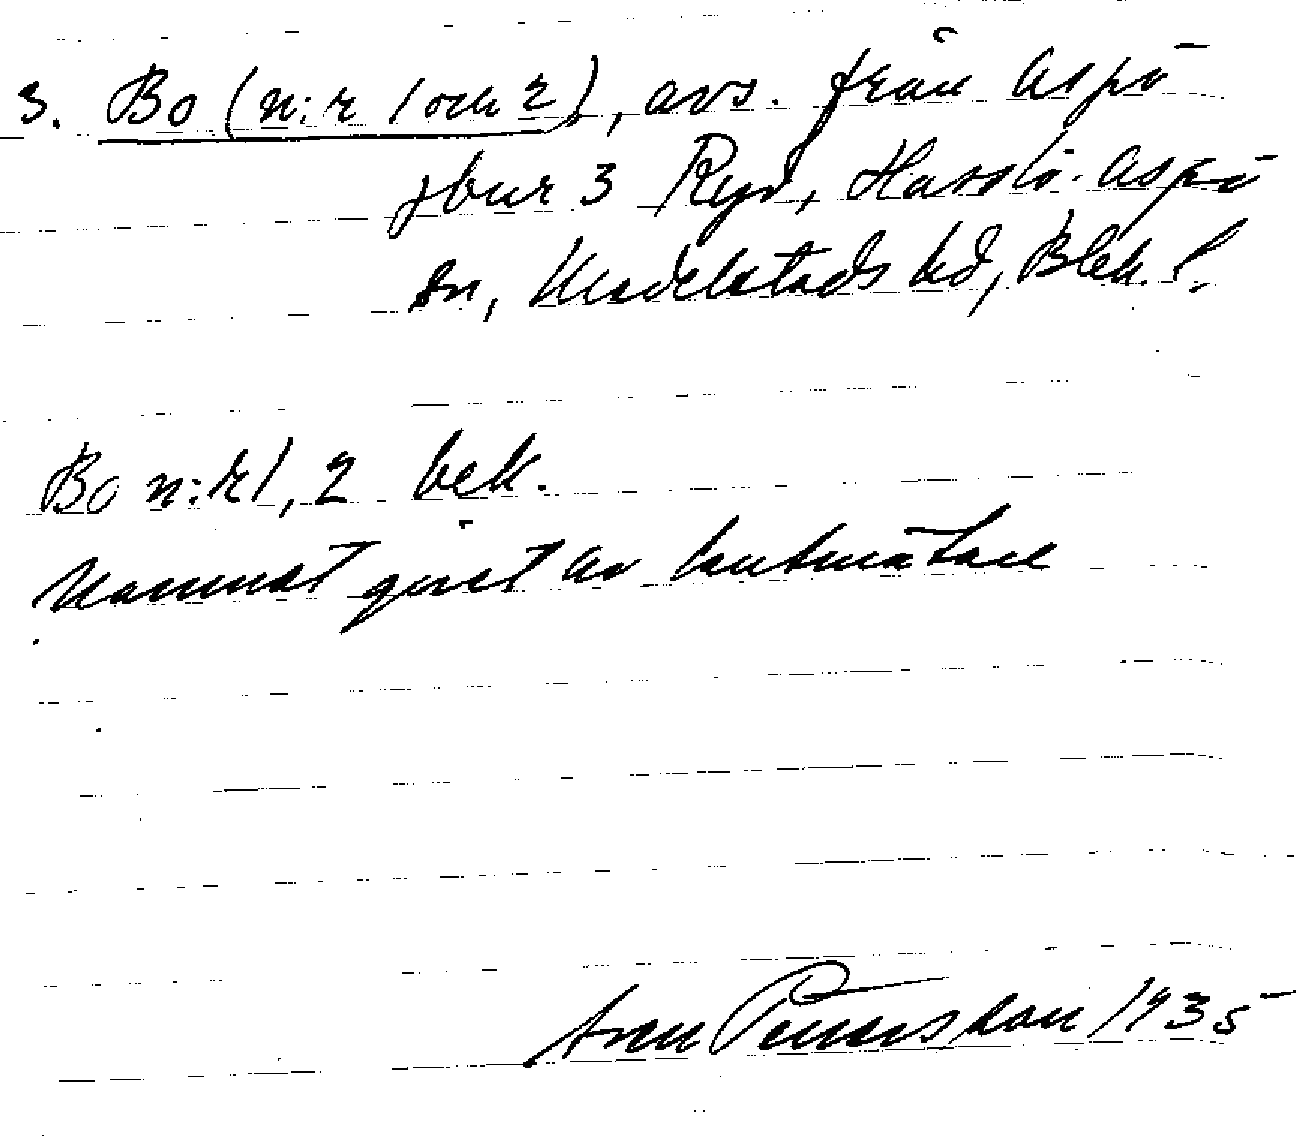 3. Bo (n:r 1 och 2), avs. från Aspö
jbur 3 Ryd, Hasslö-Aspö
sn, Medelstads hd, Blek. l.
Bo n:r 1, 2 bek.
Namnet givet av lantmätare
Sven 1935